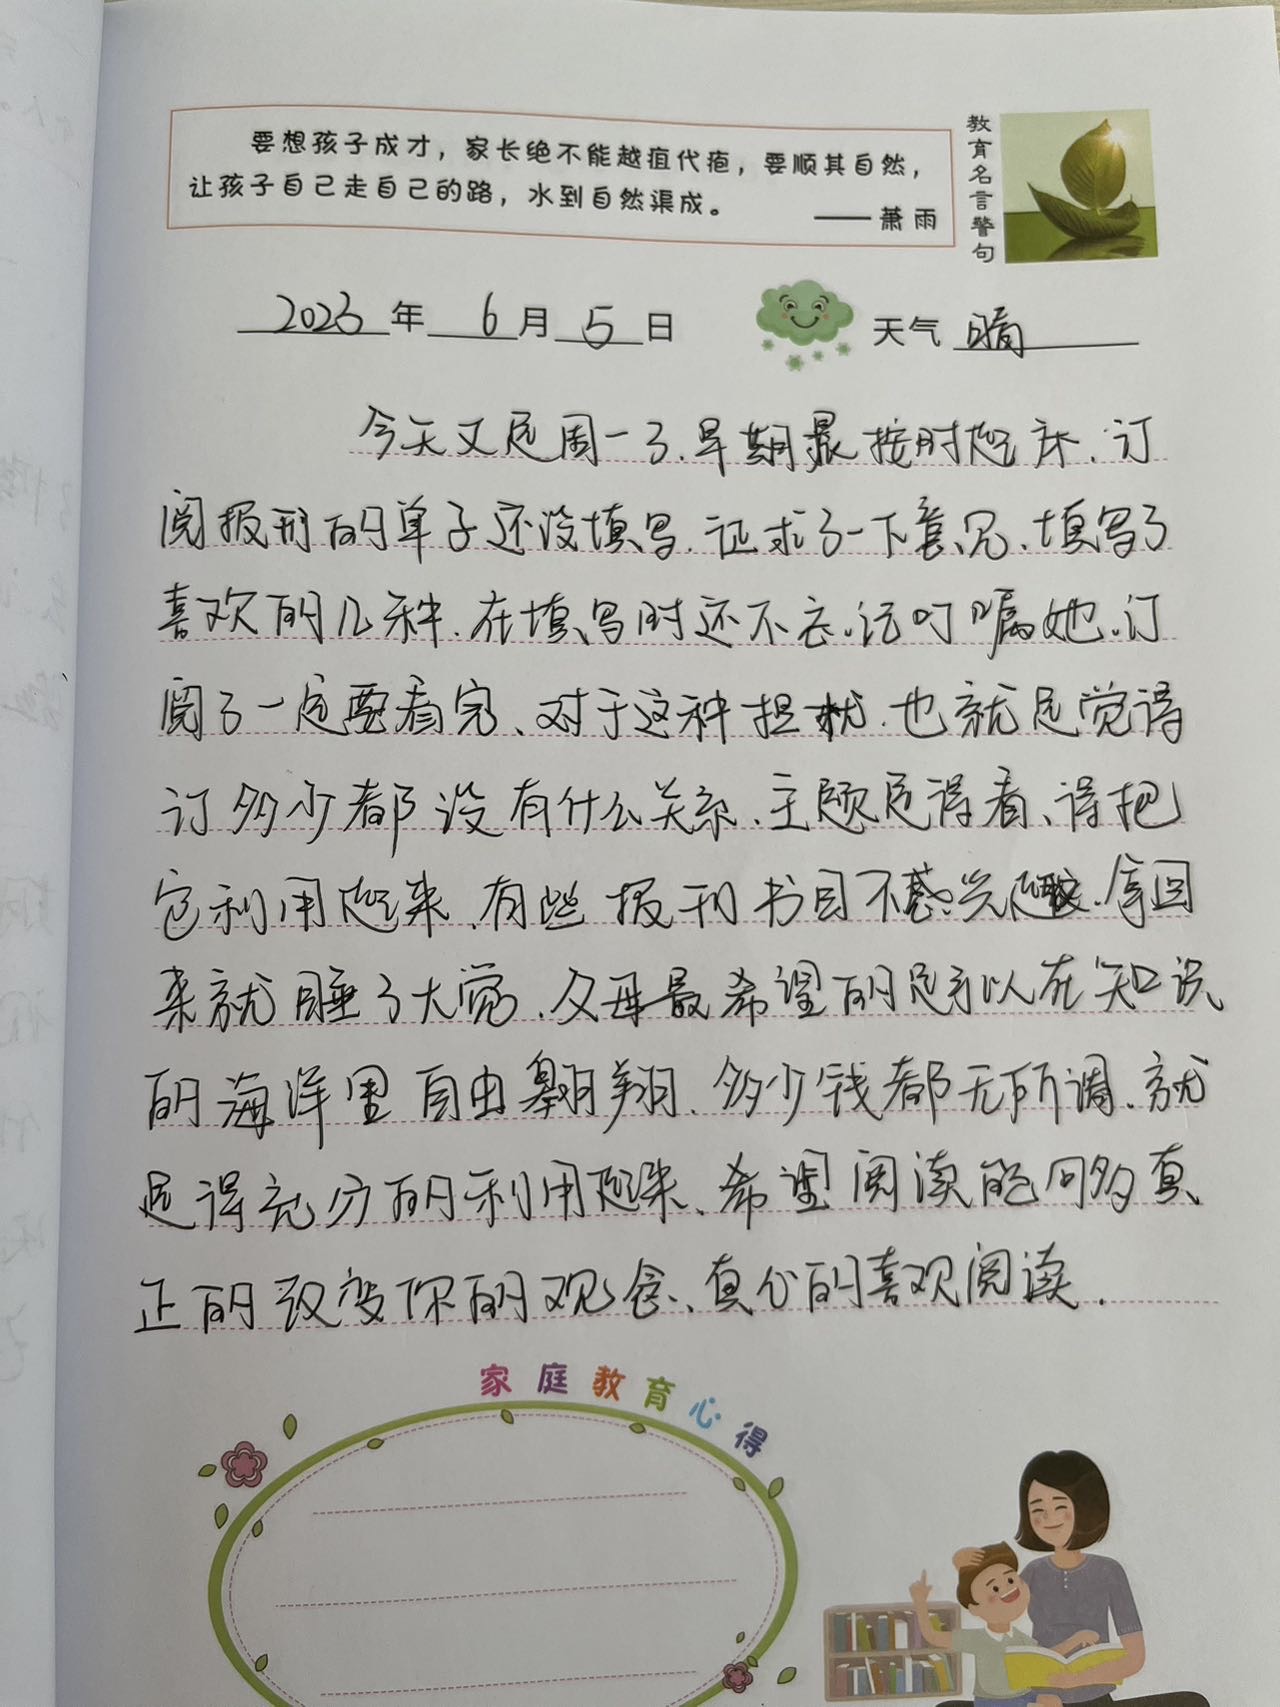 要想孩子成才，家长绝不能越疽代疱，要顺其自然，
让孩子自己走自己的路，水到自然渠成。
——萧雨
教育名言警句
2023年 6月 5日 天气 晴
今天又是周一了.早期最按时起床.订
阅报刊的单子还没填写.征求了一下意见、填写了
喜欢的几种.在填写时还不忘记叮嘱她.订
阅了一定要看完、对于这种担忧.也就是觉得
订多少都没有什么关系.主题是得看、得把
它利用起来.有些报刊书目不感兴趣.拿回
来就睡了大觉.父母最希望的是可以在知识
的海洋里自由翱翔.多少钱都无所谓.就
是得充分的利用起来、希望阅读能同多真
正的改变你的观念、真心的喜欢阅读.
家庭教育心得